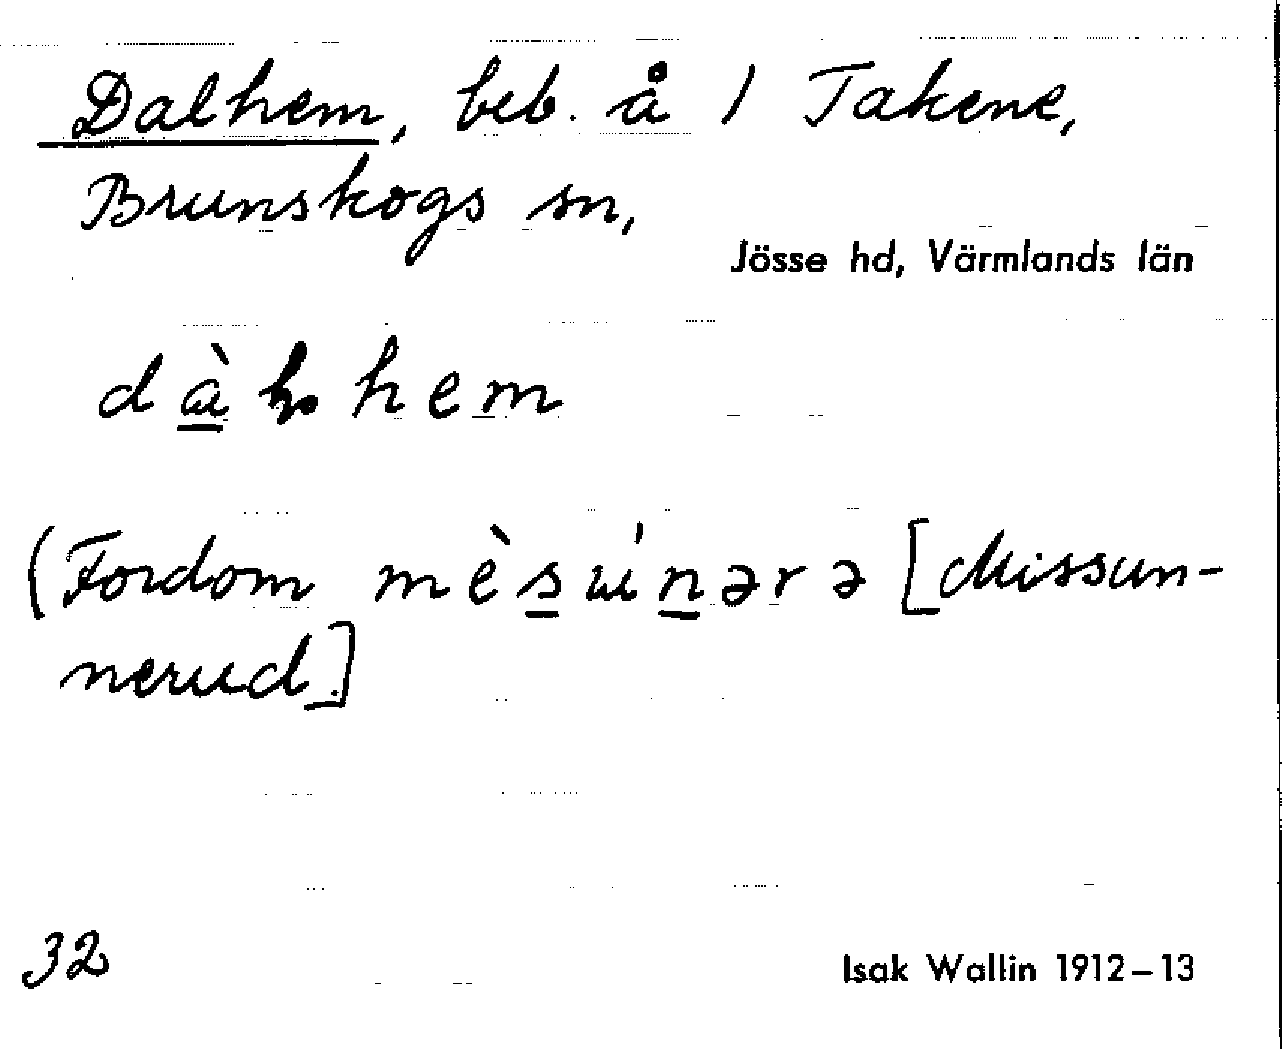 Dalhem, beb. å 1 Takene,
Brunskogs sn,
Jösse hd, Värmlands län
hem
(Fordom mèsuínərə [Missun-
nerud]
32
Isak Wallin 1912–13